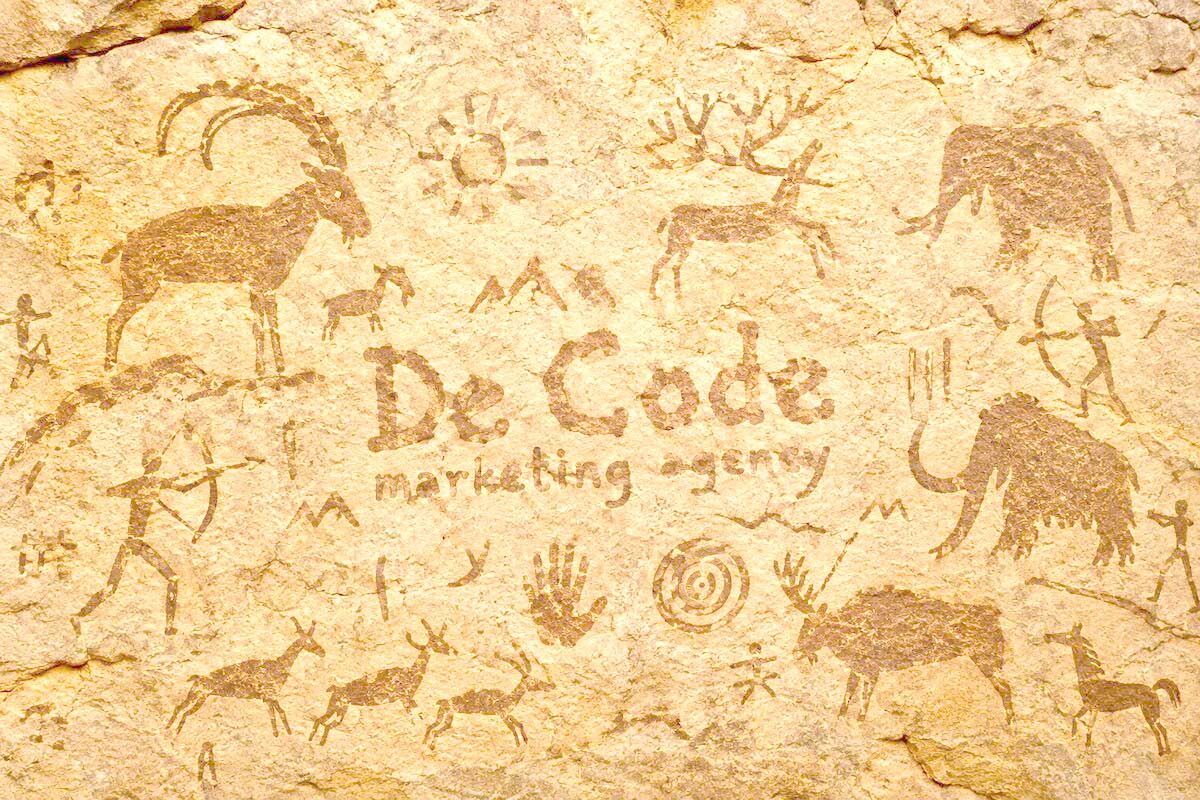 De Code
marketing agency